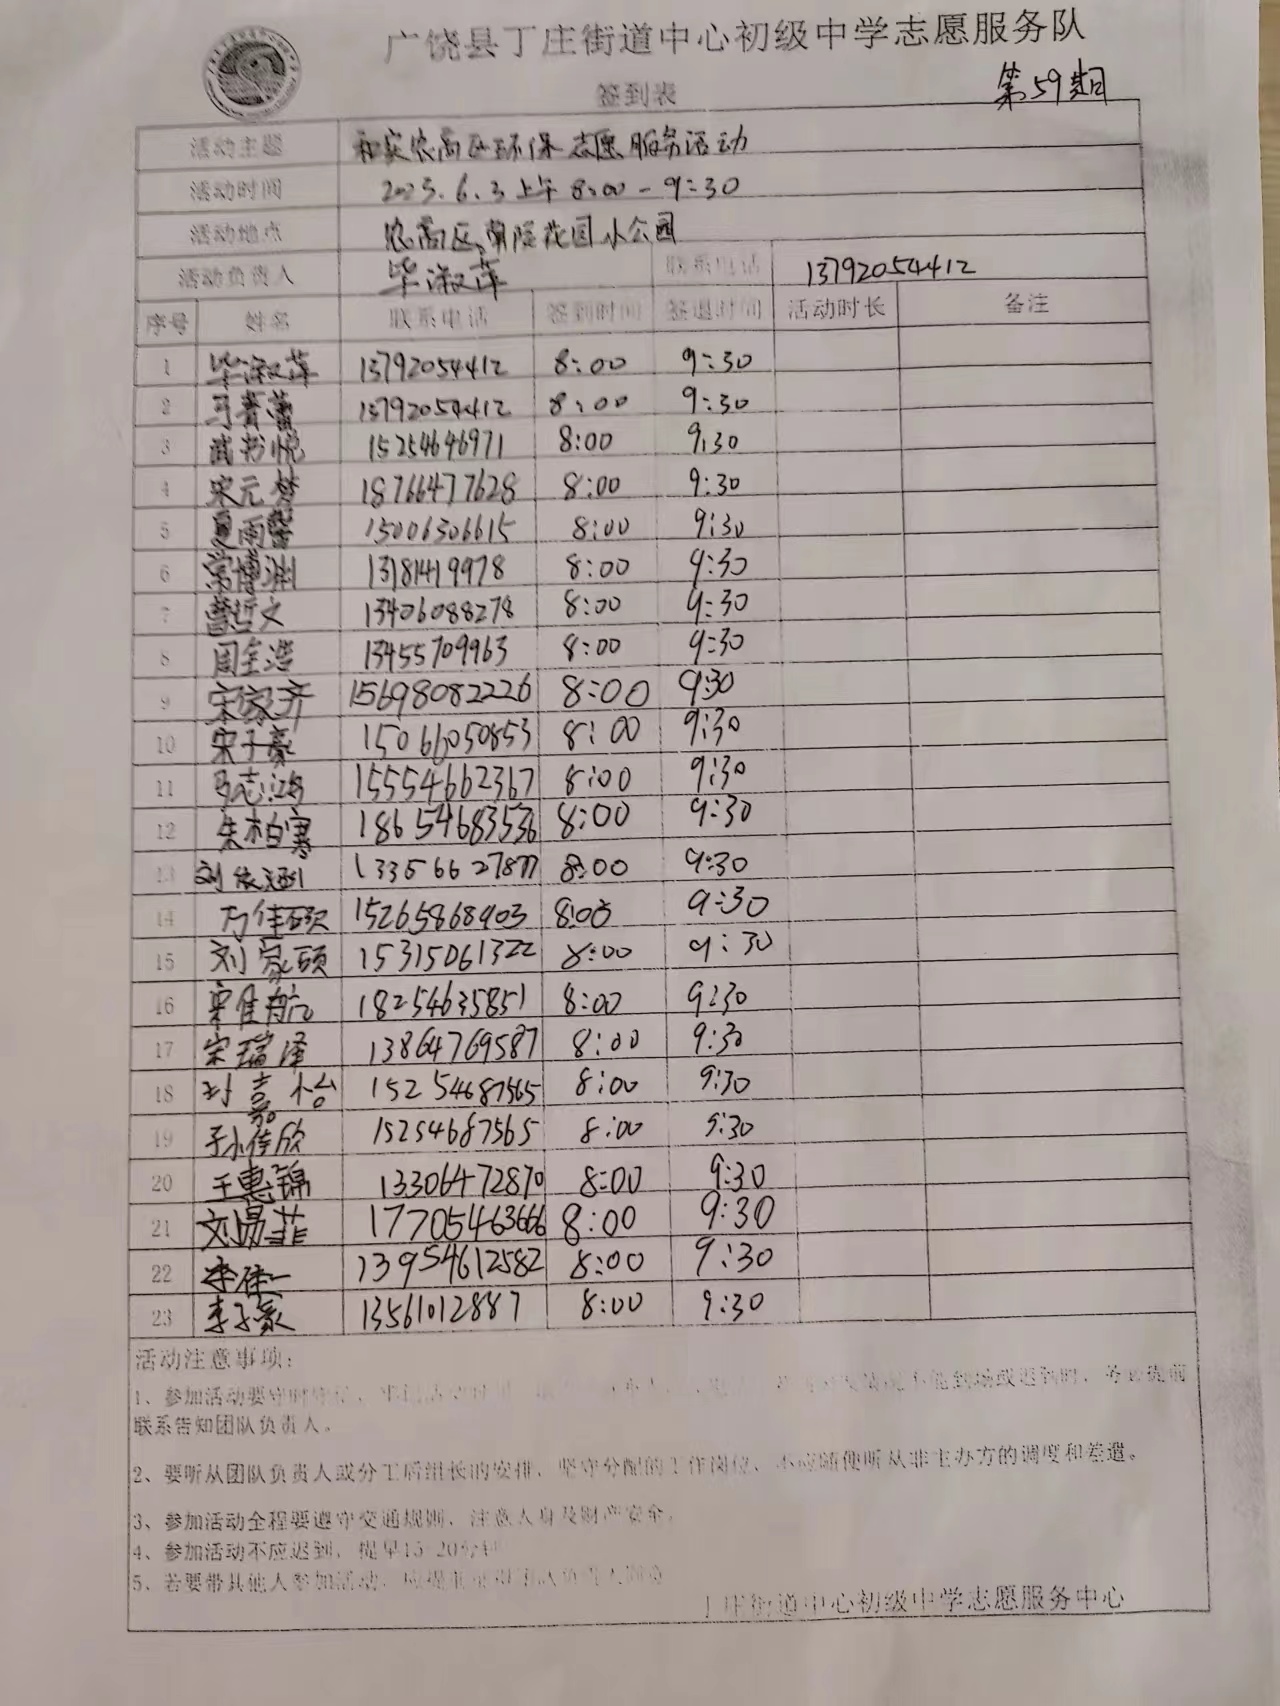 广饶县丁庄街道中心初级中学志愿服务队
签到表
第59期
活动主题 和实农高区环保志愿服务活动
活动时间 2023.6.3上午 8:00-9:30
活动地点 农高区 花园小公园
活动负责人 毕淑萍 联系电话 13792054412
序号 姓名 联系电话 签到时间 签退时间 活动时长 备注
1 毕淑萍 13792054412 8:00 9:30
2 马菁蕾 13792054412 8:00 9:30
3 武书悦 15254646971 8:00 9:30
4 宋元梦 18766477628 8:00 9:30
5 夏雨馨 15006506615 8:00 9:30
6 常博渊 13181419978 8:00 9:30
7 曹哲文 13406088278 8:00 9:30
8 周全浩 13455709963 8:00 9:30
9 宋家齐 15698082226 8:00 9:30
10 宋子豪 15066050853 8:00 9:30
11 马志鸿 15554662367 8:00 9:30
12 朱柏寒 18654683536 8:00 9:30
13 刘依 8:00 9:30
14 佳硕 15265868903 8:00 9:30
15 刘家硕 15315061322 8:00 9:30
16 宋佳航 18254635851 8:00 9:30
17 宋瑞泽 13864769587 8:00 9:30
18 嘉怡 15254687565 8:00 9:30
19 孙佳欣 15254687565 8:00 9:30
20 王惠锦 13306472870 8:00 9:30
21 刘易菲 17705463666 8:00 9:30
22 李佳一 13954612582 8:00 9:30
23 李子豪 13561012887 8:00 9:30
活动注意事项:
1、参加活动要守时 不能到场或迟到时,务必提前
联系告知团队负责人。
2、要听从团队负责人或分工后组长的安排,坚守分配的工作岗位,不应随便听从非主办方的调度和差遣。
3、参加活动全程要遵守交通规则,注意人身及财产安全。
4、参加活动不应迟到,提早15-20分钟
5、若要带其他人参加活动,应提前
丁庄街道中心初级中学志愿服务中心